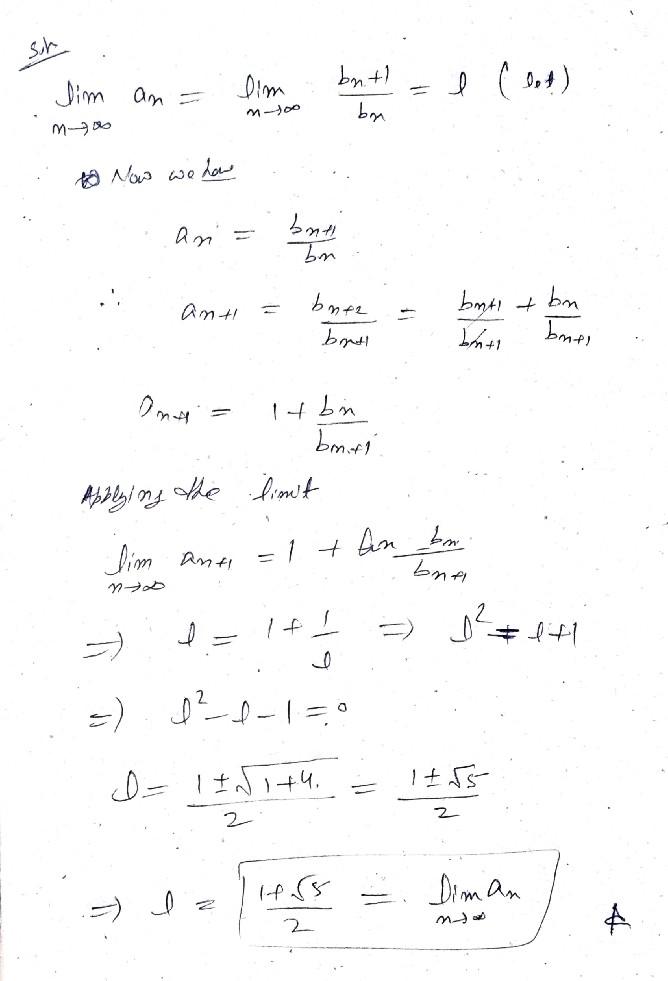 Sol
lim n→∞ an = lim n→∞ bn+1/bn = l (let)
Now we have
an = bn+1/bn
∴ an+1 = bn+2/bn+1 = bn+1/bn+1 + bn/bn+1
an+1 = 1 + bn/bn+1
Applying the limit
lim n→∞ an+1 = 1 + lim bn/bn+1
⇒ l = 1 + 1/l ⇒ l² = l+1
⇒ l² - l - 1 = 0
l = 1 ± √1+4/2 = 1 ± √5/2
⇒ l = 1+√5/2 = lim n→∞ an